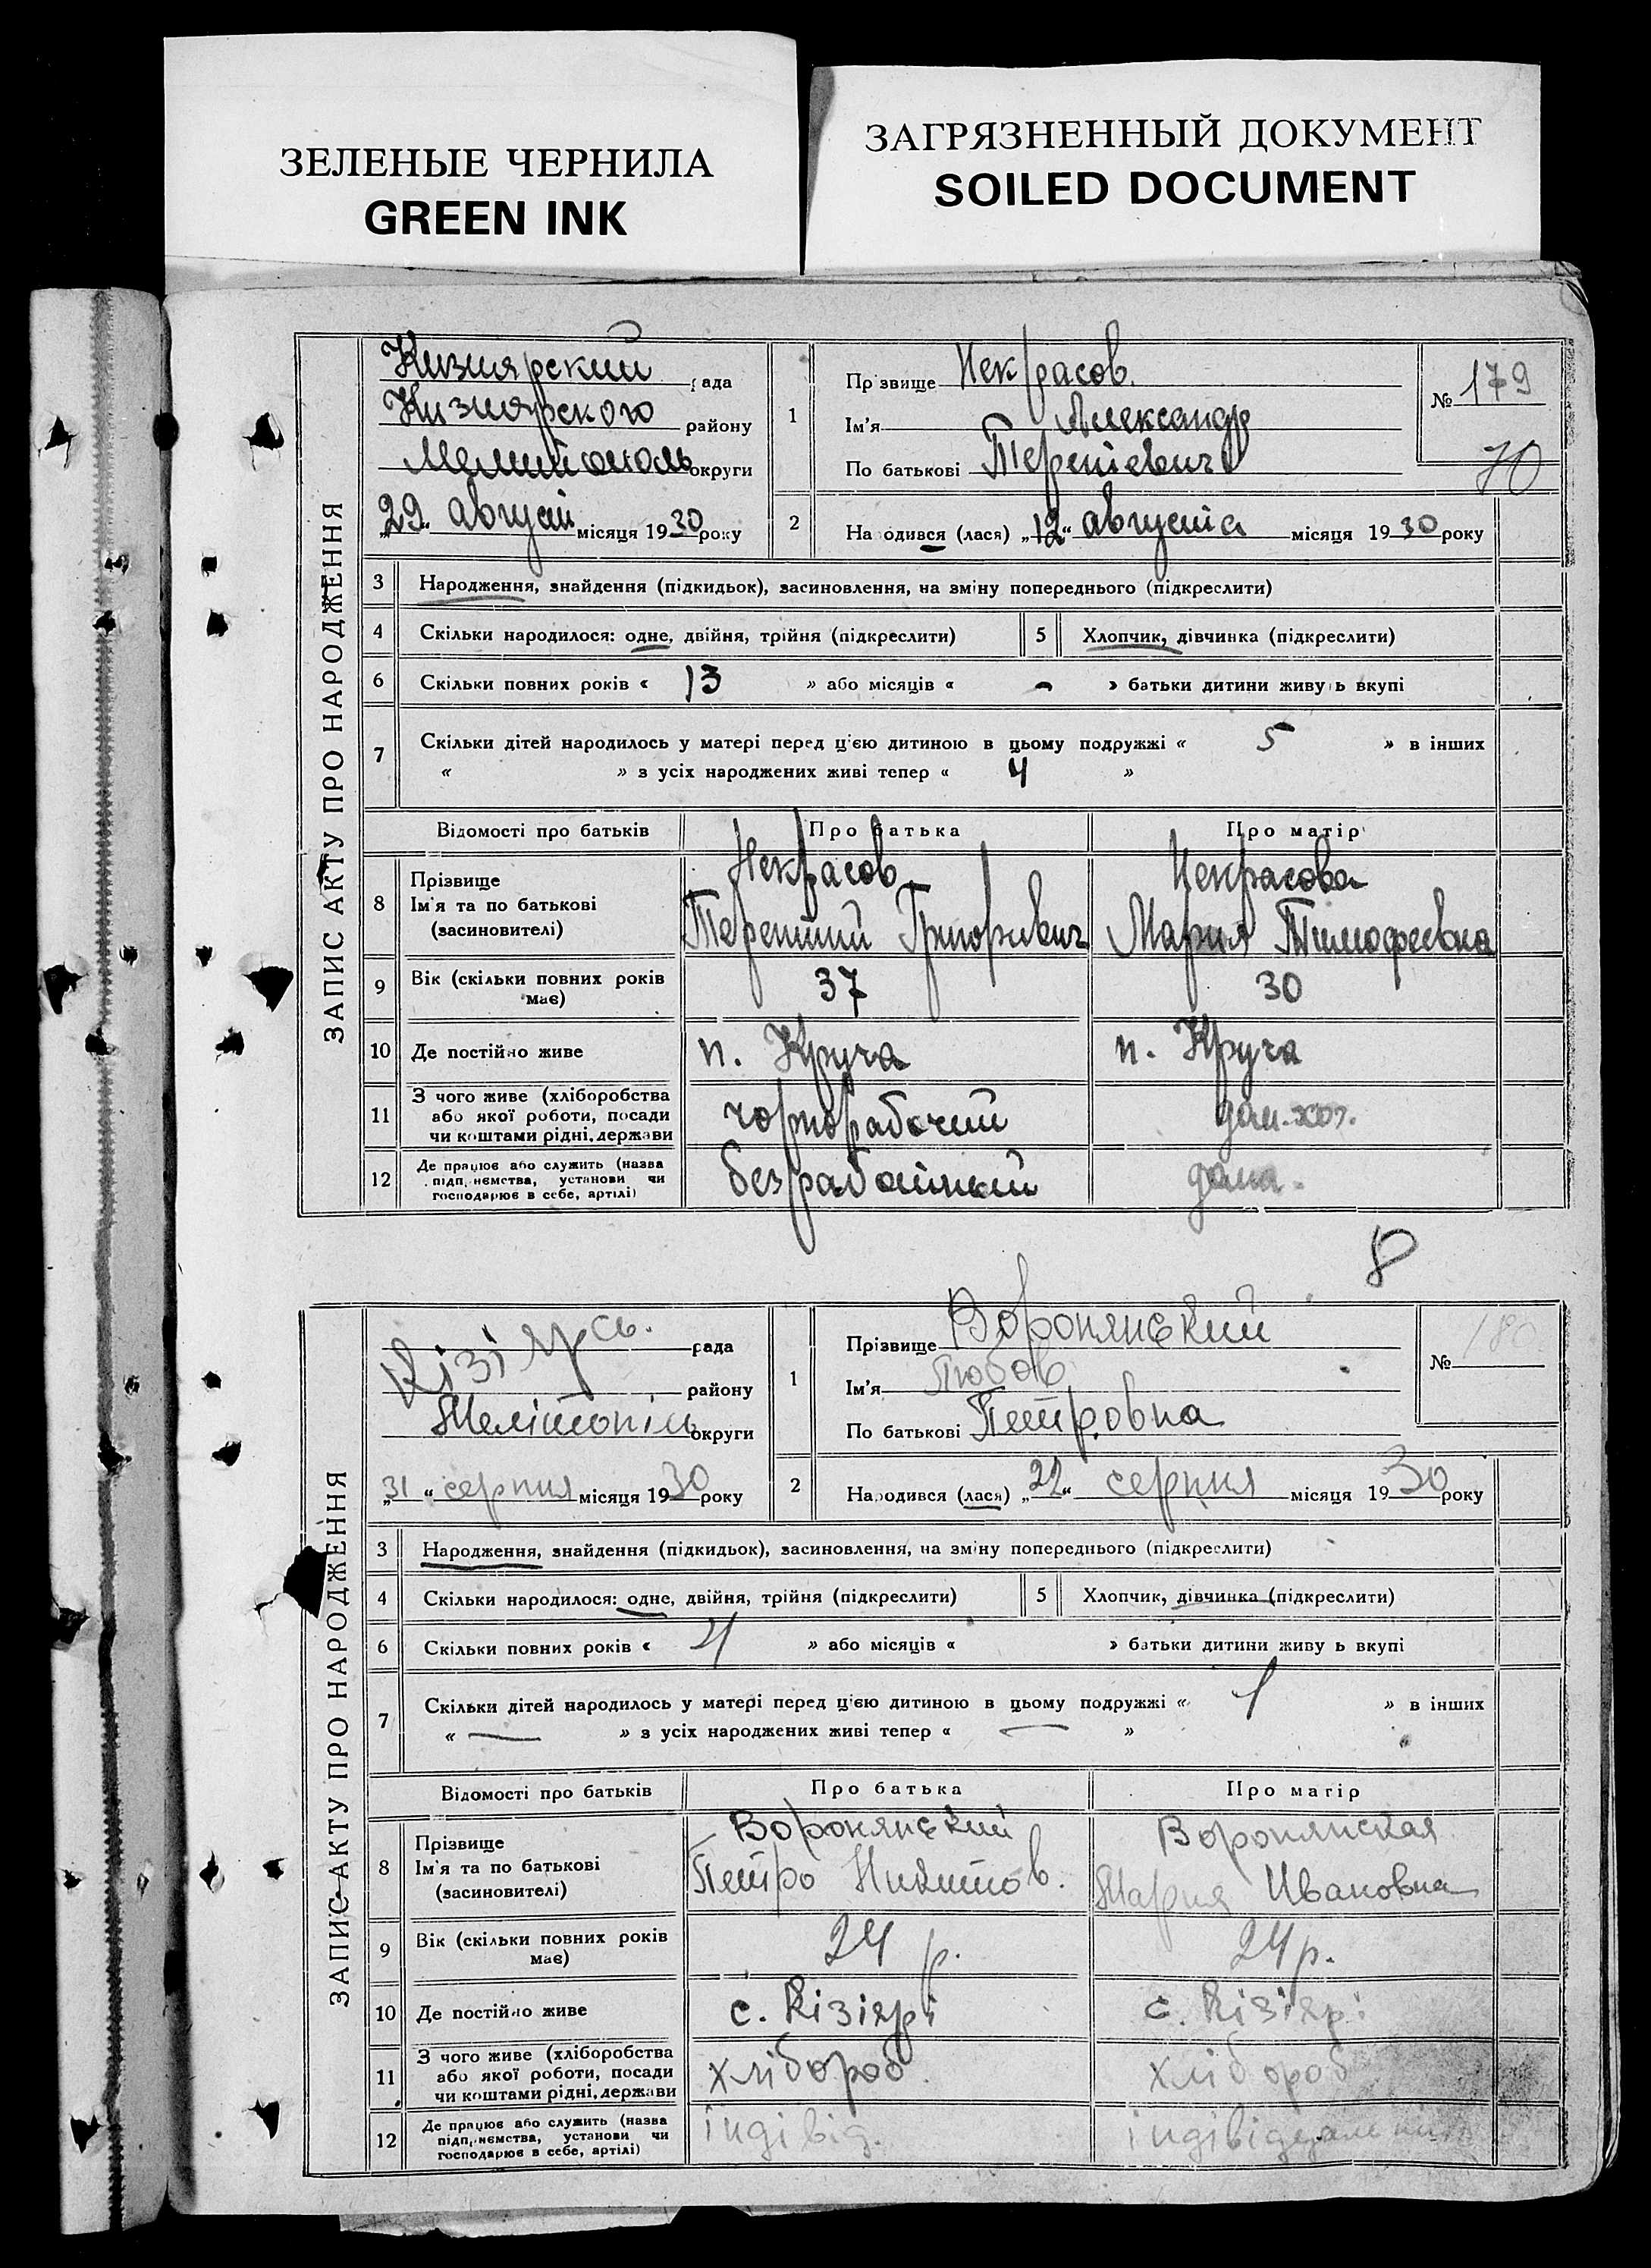 ЗЕЛЕНЫЕ ЧЕРНИЛА
GREEN INK
ЗАГРЯЗНЕННЫЙ ДОКУМЕНТ
SOILED DOCUMENT
ЗАПИС АКТУ ПРО НАРОДЖЕННЯ
Кизиярский рада
Кизиярского району
Мелитополь округи
„29“ август місяця 1930 року
1 Прізвище Некрасов
Ім'я Александр
По батькові Терентиевич
№ 179
70
2 Народився (лася) „12“ августа місяця 1930 року
3 Народження, знайдення (підкидьок), засиновлення, на зміну попереднього (підкреслити)
4 Скільки народилося: одне, двійня, трійня (підкреслити) 5 Хлопчик, дівчинка (підкреслити)
6 Скільки повних років « 13 » або місяців « - » батьки дитини живуть вкупі
7 Скільки дітей народилось у матері перед цією дитиною в цьому подружжі « 5 » в інших
« » з усіх народжених живі тепер « 4 »
Відомості про батьків Про батька Про матір
8 Прізвище Ім'я та по батькові (засиновителі) Некрасов Терентий Григоривич Некрасова Мария Тимофеевна
9 Вік (скільки повних років має) 37 30
10 Де постійно живе п. Круча п. Круча
11 З чого живе (хліборобства або якої роботи, посади чи коштами рідні, держави чорнорабочий дом. хоз.
12 Де працює або служить (назва підприємства, установи чи господарює в себе, артілі) безработный дома.
8
ЗАПИС АКТУ ПРО НАРОДЖЕННЯ
Кізіярсь. рада
району
Мелітопіль округи
„31“ серпня місяця 1930 року
1 Прізвище Воронянский
Ім'я Любов
По батькові Петровна
№ 180
2 Народився (лася) „22“ серпня місяця 1930 року
3 Народження, знайдення (підкидьок), засиновлення, на зміну попереднього (підкреслити)
4 Скільки народилося: одне, двійня, трійня (підкреслити) 5 Хлопчик, дівчинка (підкреслити)
6 Скільки повних років « 4 » або місяців « » батьки дитини живуть вкупі
7 Скільки дітей народилось у матері перед цією дитиною в цьому подружжі « 1 » в інших
« — » з усіх народжених живі тепер « — »
Відомості про батьків Про батька Про матір
8 Прізвище Ім'я та по батькові (засиновителі) Воронянский Петро Никитов. Воронянская Мария Ивановна
9 Вік (скільки повних років має) 24 р. 24 р.
10 Де постійно живе с. Кізіярі с. Кізіярі
11 З чого живе (хліборобства або якої роботи, посади чи коштами рідні, держави хлібороб хлібороб
12 Де працює або служить (назва підприємства, установи чи господарює в себе, артілі) індівід.